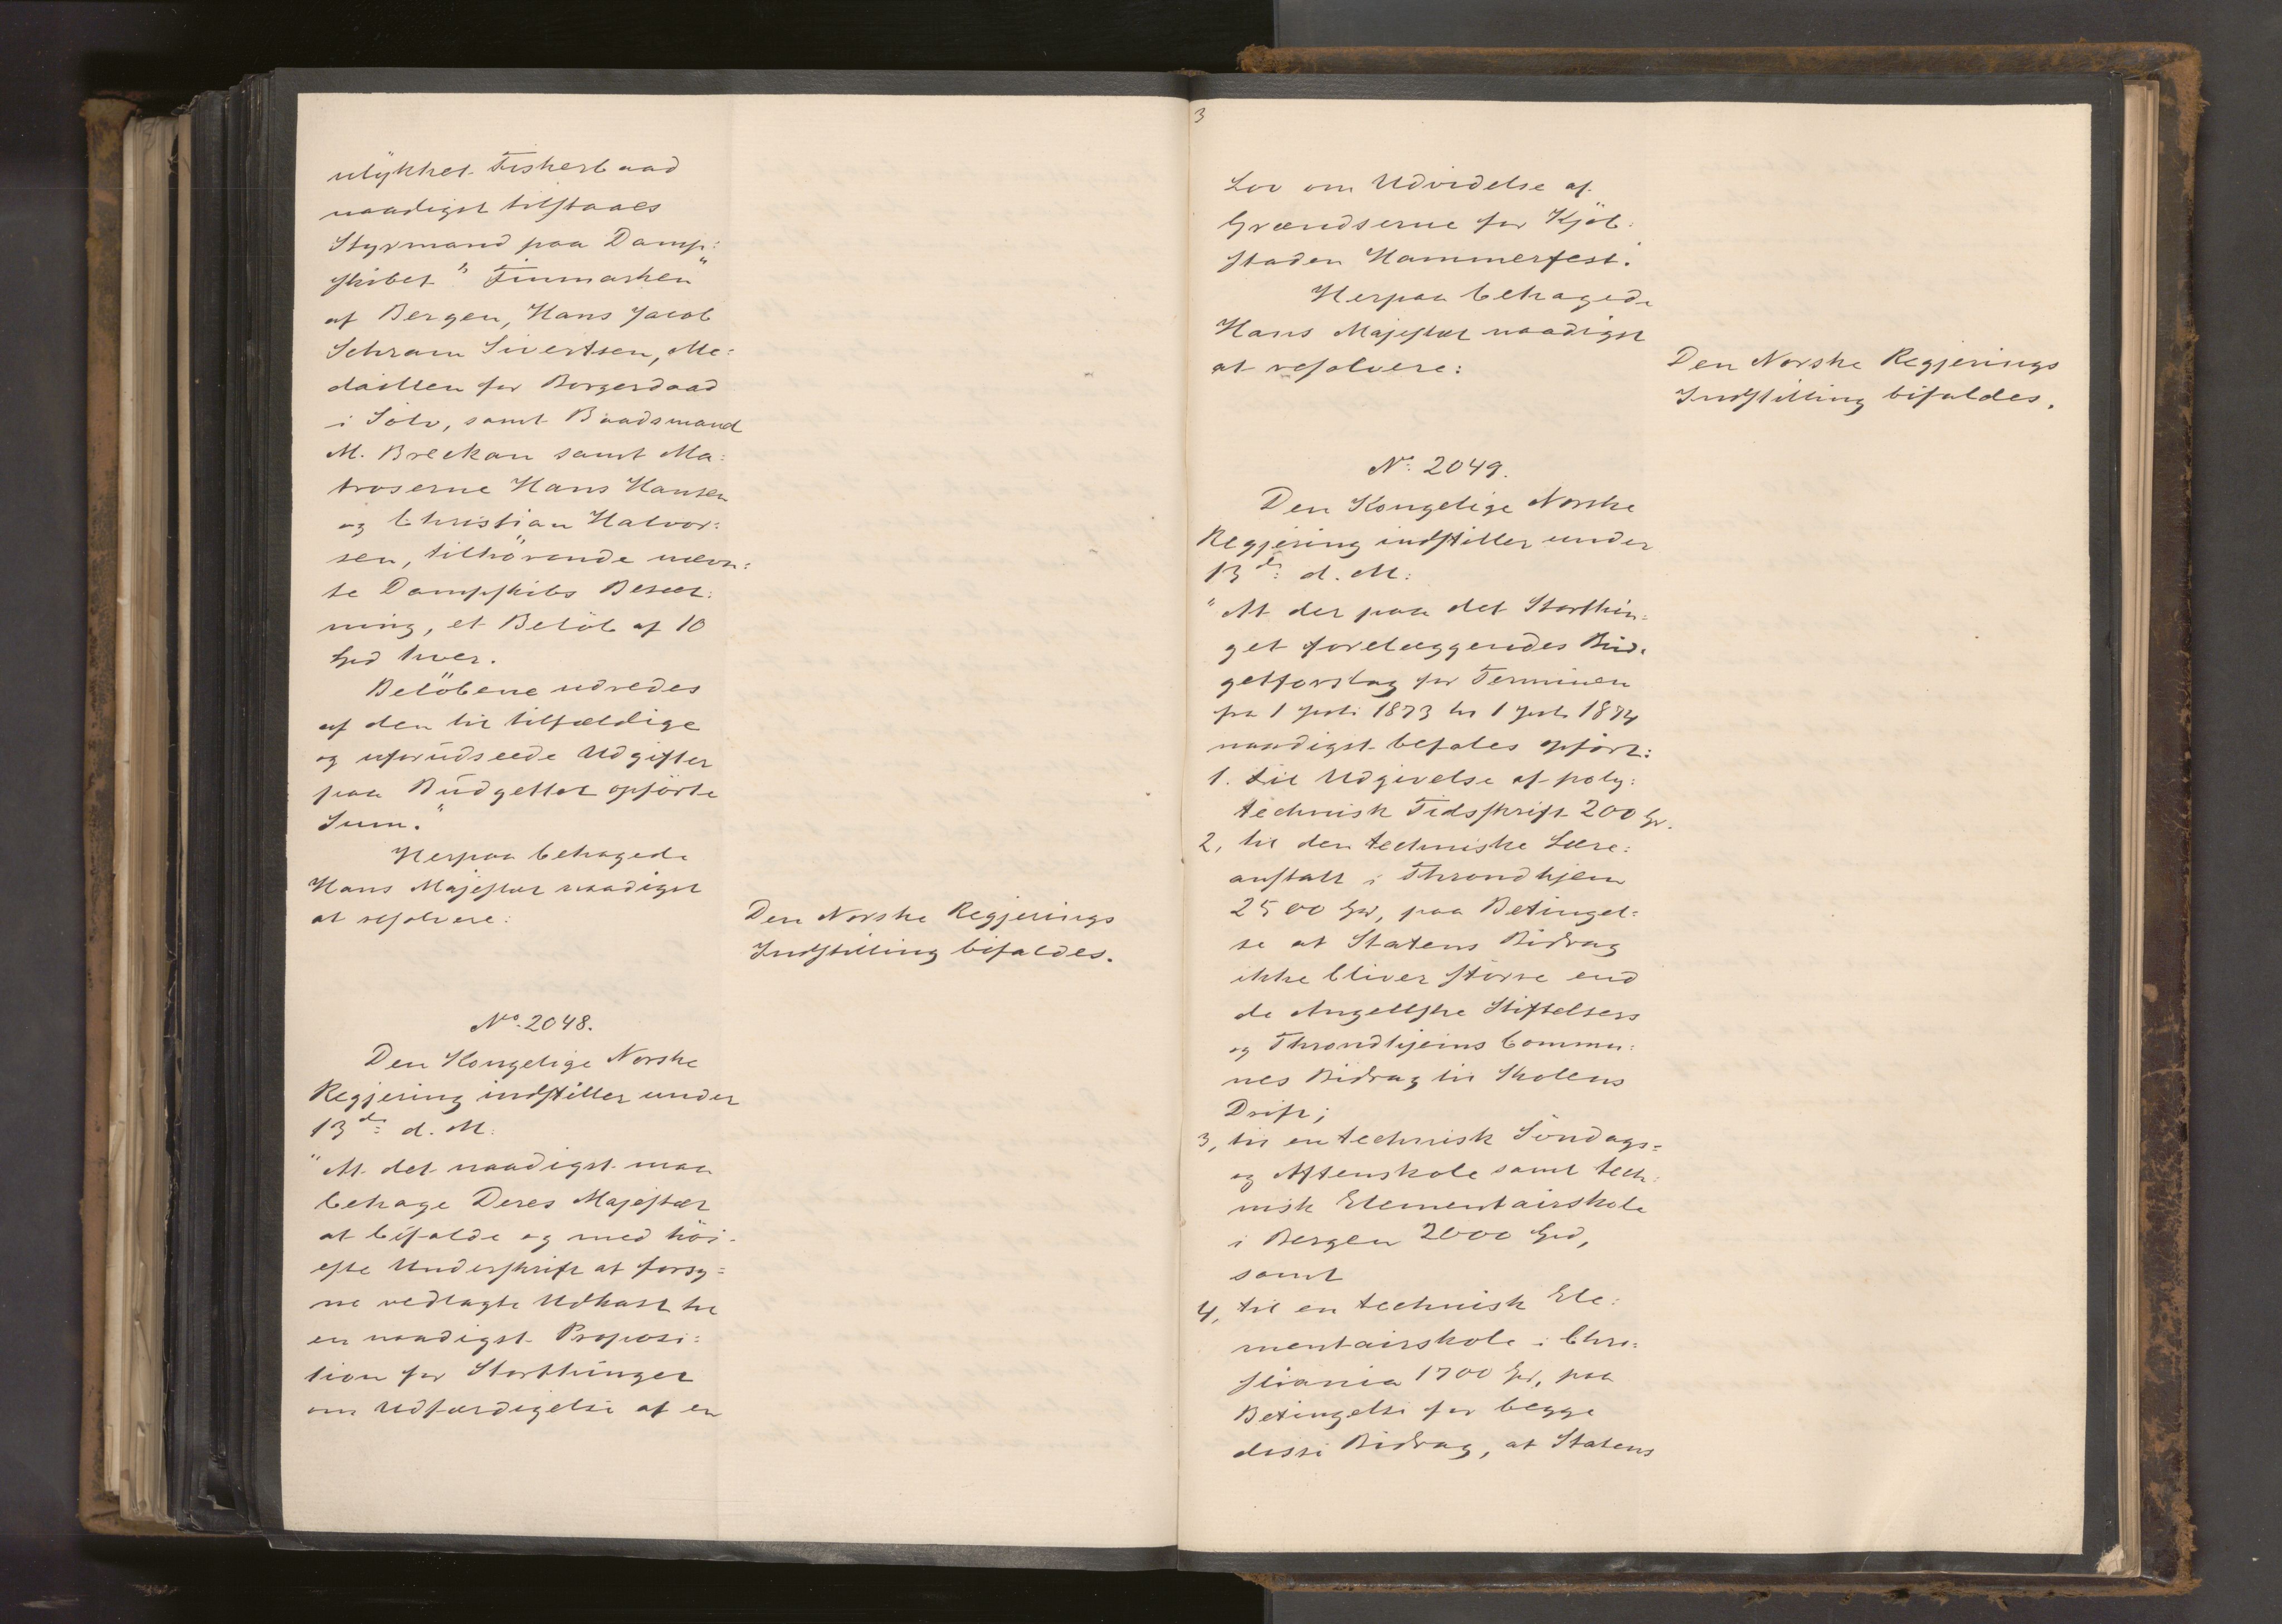 ulykket Fiskerbaad
naadigst tilstaaes
Styrmand paa Damp:
skibet "Finmarken"
af Bergen, Hans Jacob
Schram Sivertsen, Me:
daillen for Borgerdaad
i Sölv, samt Baadsmand
M. Breckan samt Ma:
troserne Hans Hansen
og Christian Halvor:
sen, tilhörende nævn:
te Dampskibs Besæt:
ning, et Belöb af 10
Spd hver.
Belöbene udredes
af den til tilfældige
og uforudseede Udgifter
paa Budgettet opförte
Sum."
Herpaa behagede
Hans Majestæt naadigst
at resolvere:
Den Norske Regjerings
Indstilling bifaldes.
No. 2048.
Den Kongelige Norske
Regjering indstiller under
13de: d. M:
"At det naadigst maa
behage Deres Majestæt
at bifalde og med höi-
este Underskrift at forsy=
ne vedlagte Udkast til
en naadigst Proposi:
tion for Storthinget
om Udfærdigelse af en
3
Lov om Udvidelse af
Grændserne for Kjöb:
staden Hammerfest."
Herpaa behagede
Hans Majestæt naadigst
at resolvere:
Den Norske Regjerings
Indstilling bifaldes.
No: 2049.
Den Kongelige Norske
Regjering indstiller under
13de: d. M:
"At der paa det Storthin:
get forelæggendes Bud:
getforslag for Terminen
fra 1 Juli 1873 til 1 Juli 1874
naadigst befales opfört:
1. til Udgivelse af poly:
technisk Tidsskrift 200 Sp.
2, til den techniske Lære:
anstalt i Throndhjem
2500 Spd, paa Betingel:
se at Statens Bidrag
ikke bliver större end
de Angellske Stiftelsers
og Throndhjems Commu:
nes Bidrag til Skolens
Drift;
3, til en technisk Söndags=
og Aftenskole samt tech:
nisk Elementairskole
i Bergen 2000 Spd,
samt
4, til en technisk Ele:
mentairskole i Chri:
stiania 1700 Spd, paa
Betingelse for begge
disse Bidrag, at Statens